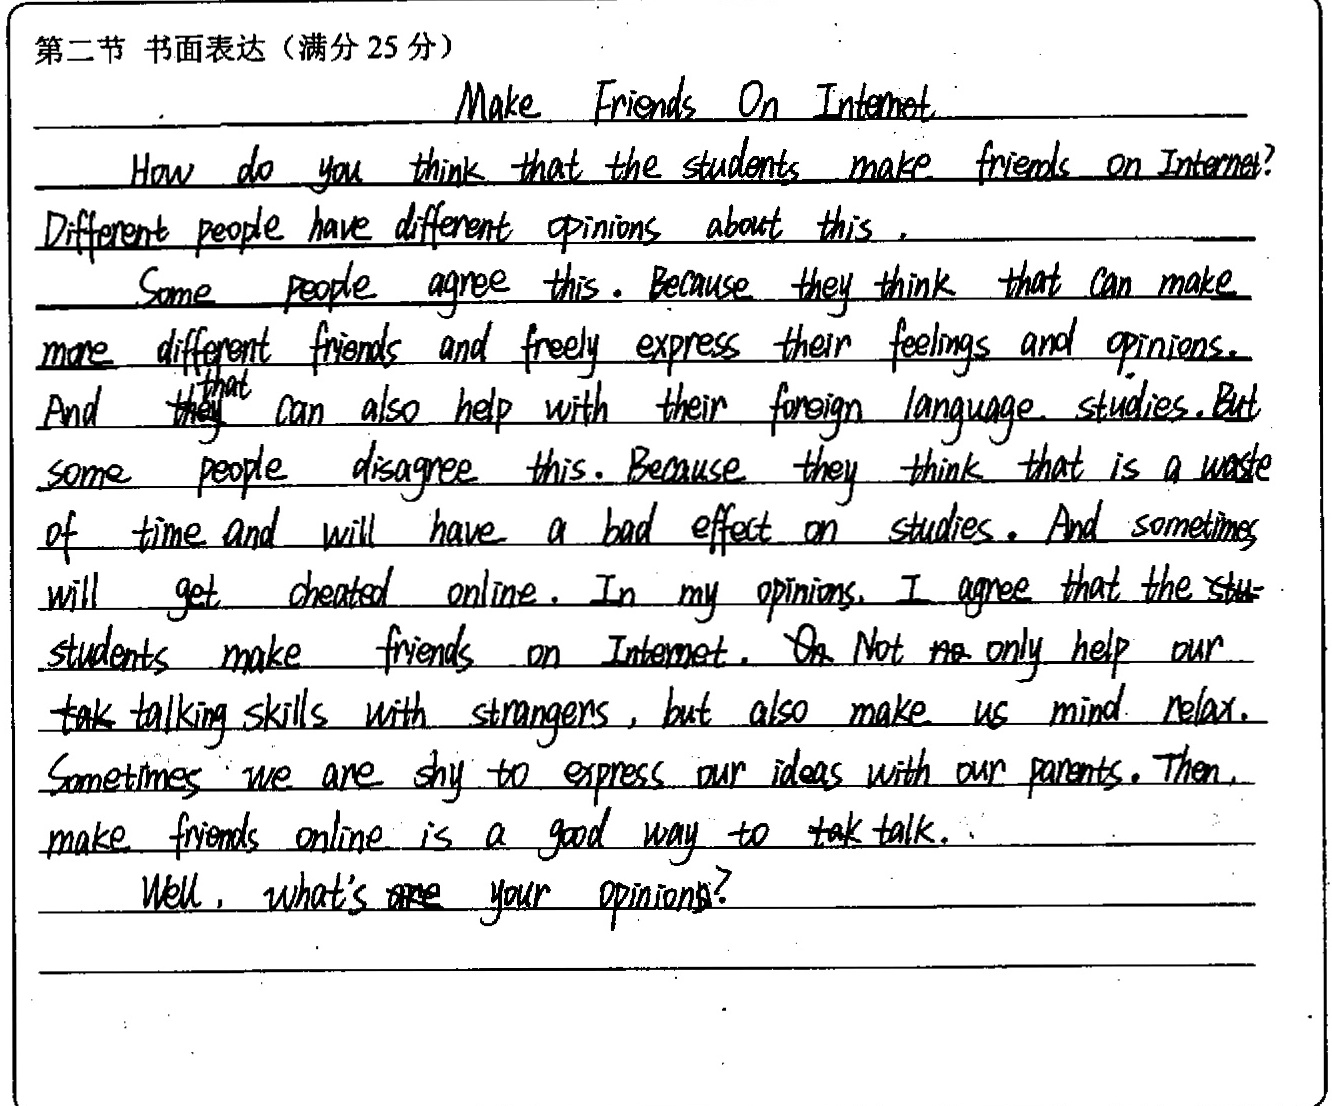 第二节 书面表达（满分 25 分）
Make Friends On Internet
How do you think that the students make friends on Internet?
Different people have different opinions about this.
Some people agree this. Because they think that can make
more different friends and freely express their feelings and opinions.
And they that can also help with their foreign language studies. But
some people disagree this. Because they think that is a waste
of time and will have a bad effect on studies. And sometimes
will get cheated online. In my opinions, I agree that the stu-
students make friends on Internet. On Not no only help our
tak talking skills with strangers, but also make us mind relax.
Sometimes we are shy to express our ideas with our parents. Then,
make friends online is a good way to tak talk.
Well, what's are your opinions?